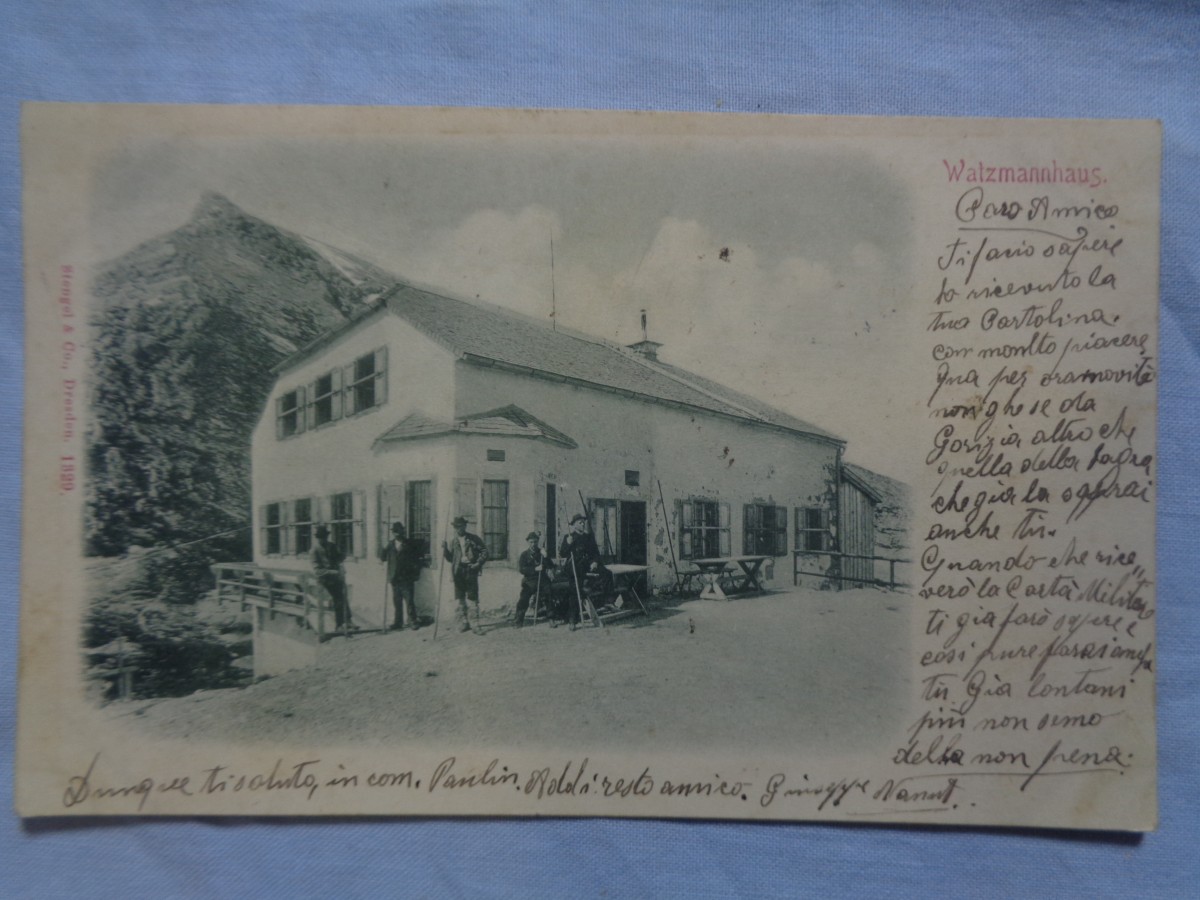 Watzmannhaus.
Caro Amico
Ti facio sapere
to ricevuto la
tua Cartolina.
con monlto piacere,
Qua per ora movità
non ghe se da
Gorizia altro che
quella della Sagra
che gia la sapérai
anche tù.
Quando che rice„
verò la Carta Militar
ti gia farò sapere e
cosi pure farai
tù. Gia lontani
più non semo
della non pena.
Dunque ti saluto, in com. Paulin. Addi: resto amico. Giuseppe Nanut.
Stengel & Co., Dresden. 1899.